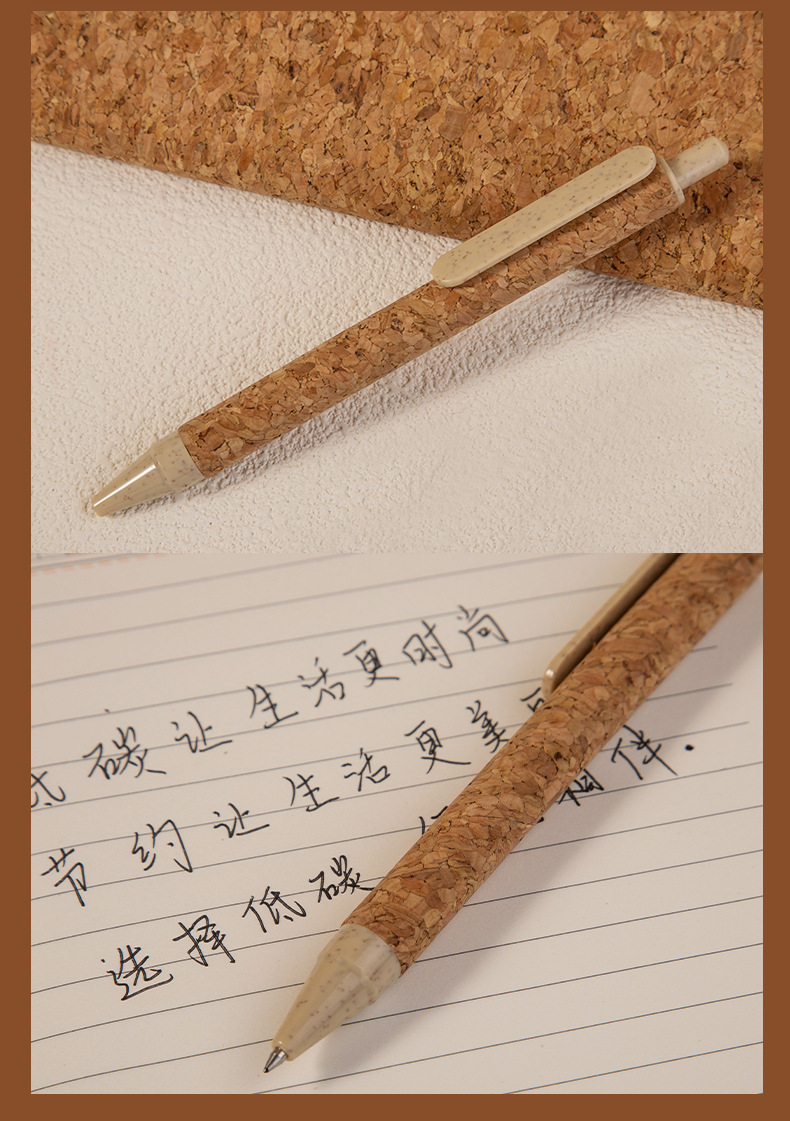 低碳让生活更时尚
节约让生活更美
选择低碳 相伴.